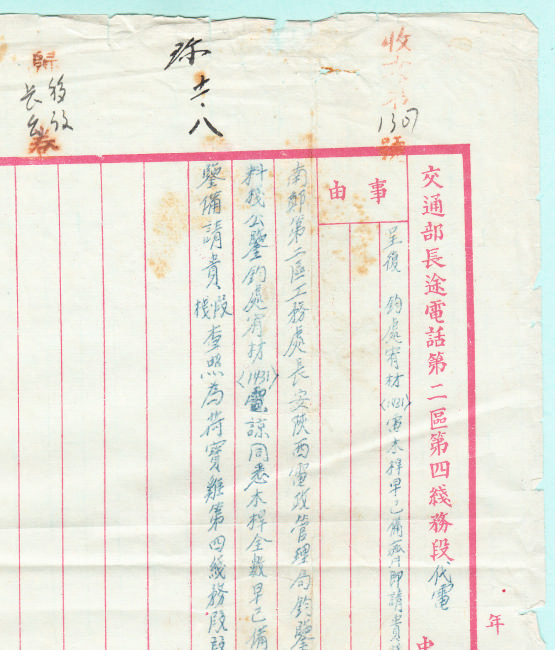 收文第
1307
號
交通部長途電話第二區第四綫務段代電
年
事由
呈復 鈞處宥材(1931)電木桿早已備齊即請貴
南鄭第二區工務處長安陝西電政管理局鈞鑒
料棧公鑒鈞處宥材(1931)電諒同悉木桿全數早已備
鑒備請貴段棧查照為荷寶雞第四綫務段段
十一.八
歸
卷